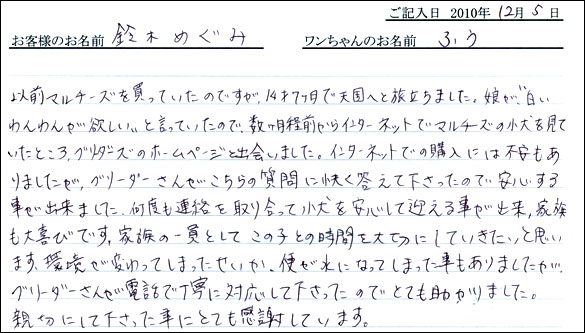 ご記入日 2010年 12月 5日
お客様のお名前 鈴木めぐみ ワンちゃんのお名前 ふう
以前マルチーズを買っていたのですが、14才7ヶ月で天国へと旅立ちました。娘が、"白い
わんわんが欲しい"と言っていたので、数ヶ月程前からインターネットでマルチーズの小犬を見て
いたところ、ブリダーズのホームページと出会いました。インターネットでの購入には不安もあ
りましたが、ブリーダーさんがこちらの質問に快く答えて下さったので安心する
事が出来ました。何度も連絡を取り合って小犬を安心して迎える事が出来、家族
も大喜びです。家族の一員としてこの子との時間を大切にしていきたいと思い
ます。環境が変わってしまったせいか、便が水になってしまった事もありましたが、
ブリーダーさんが電話で丁寧に対応して下さったのでとても助かりました。
親切にして下さった事にとても感謝しています。